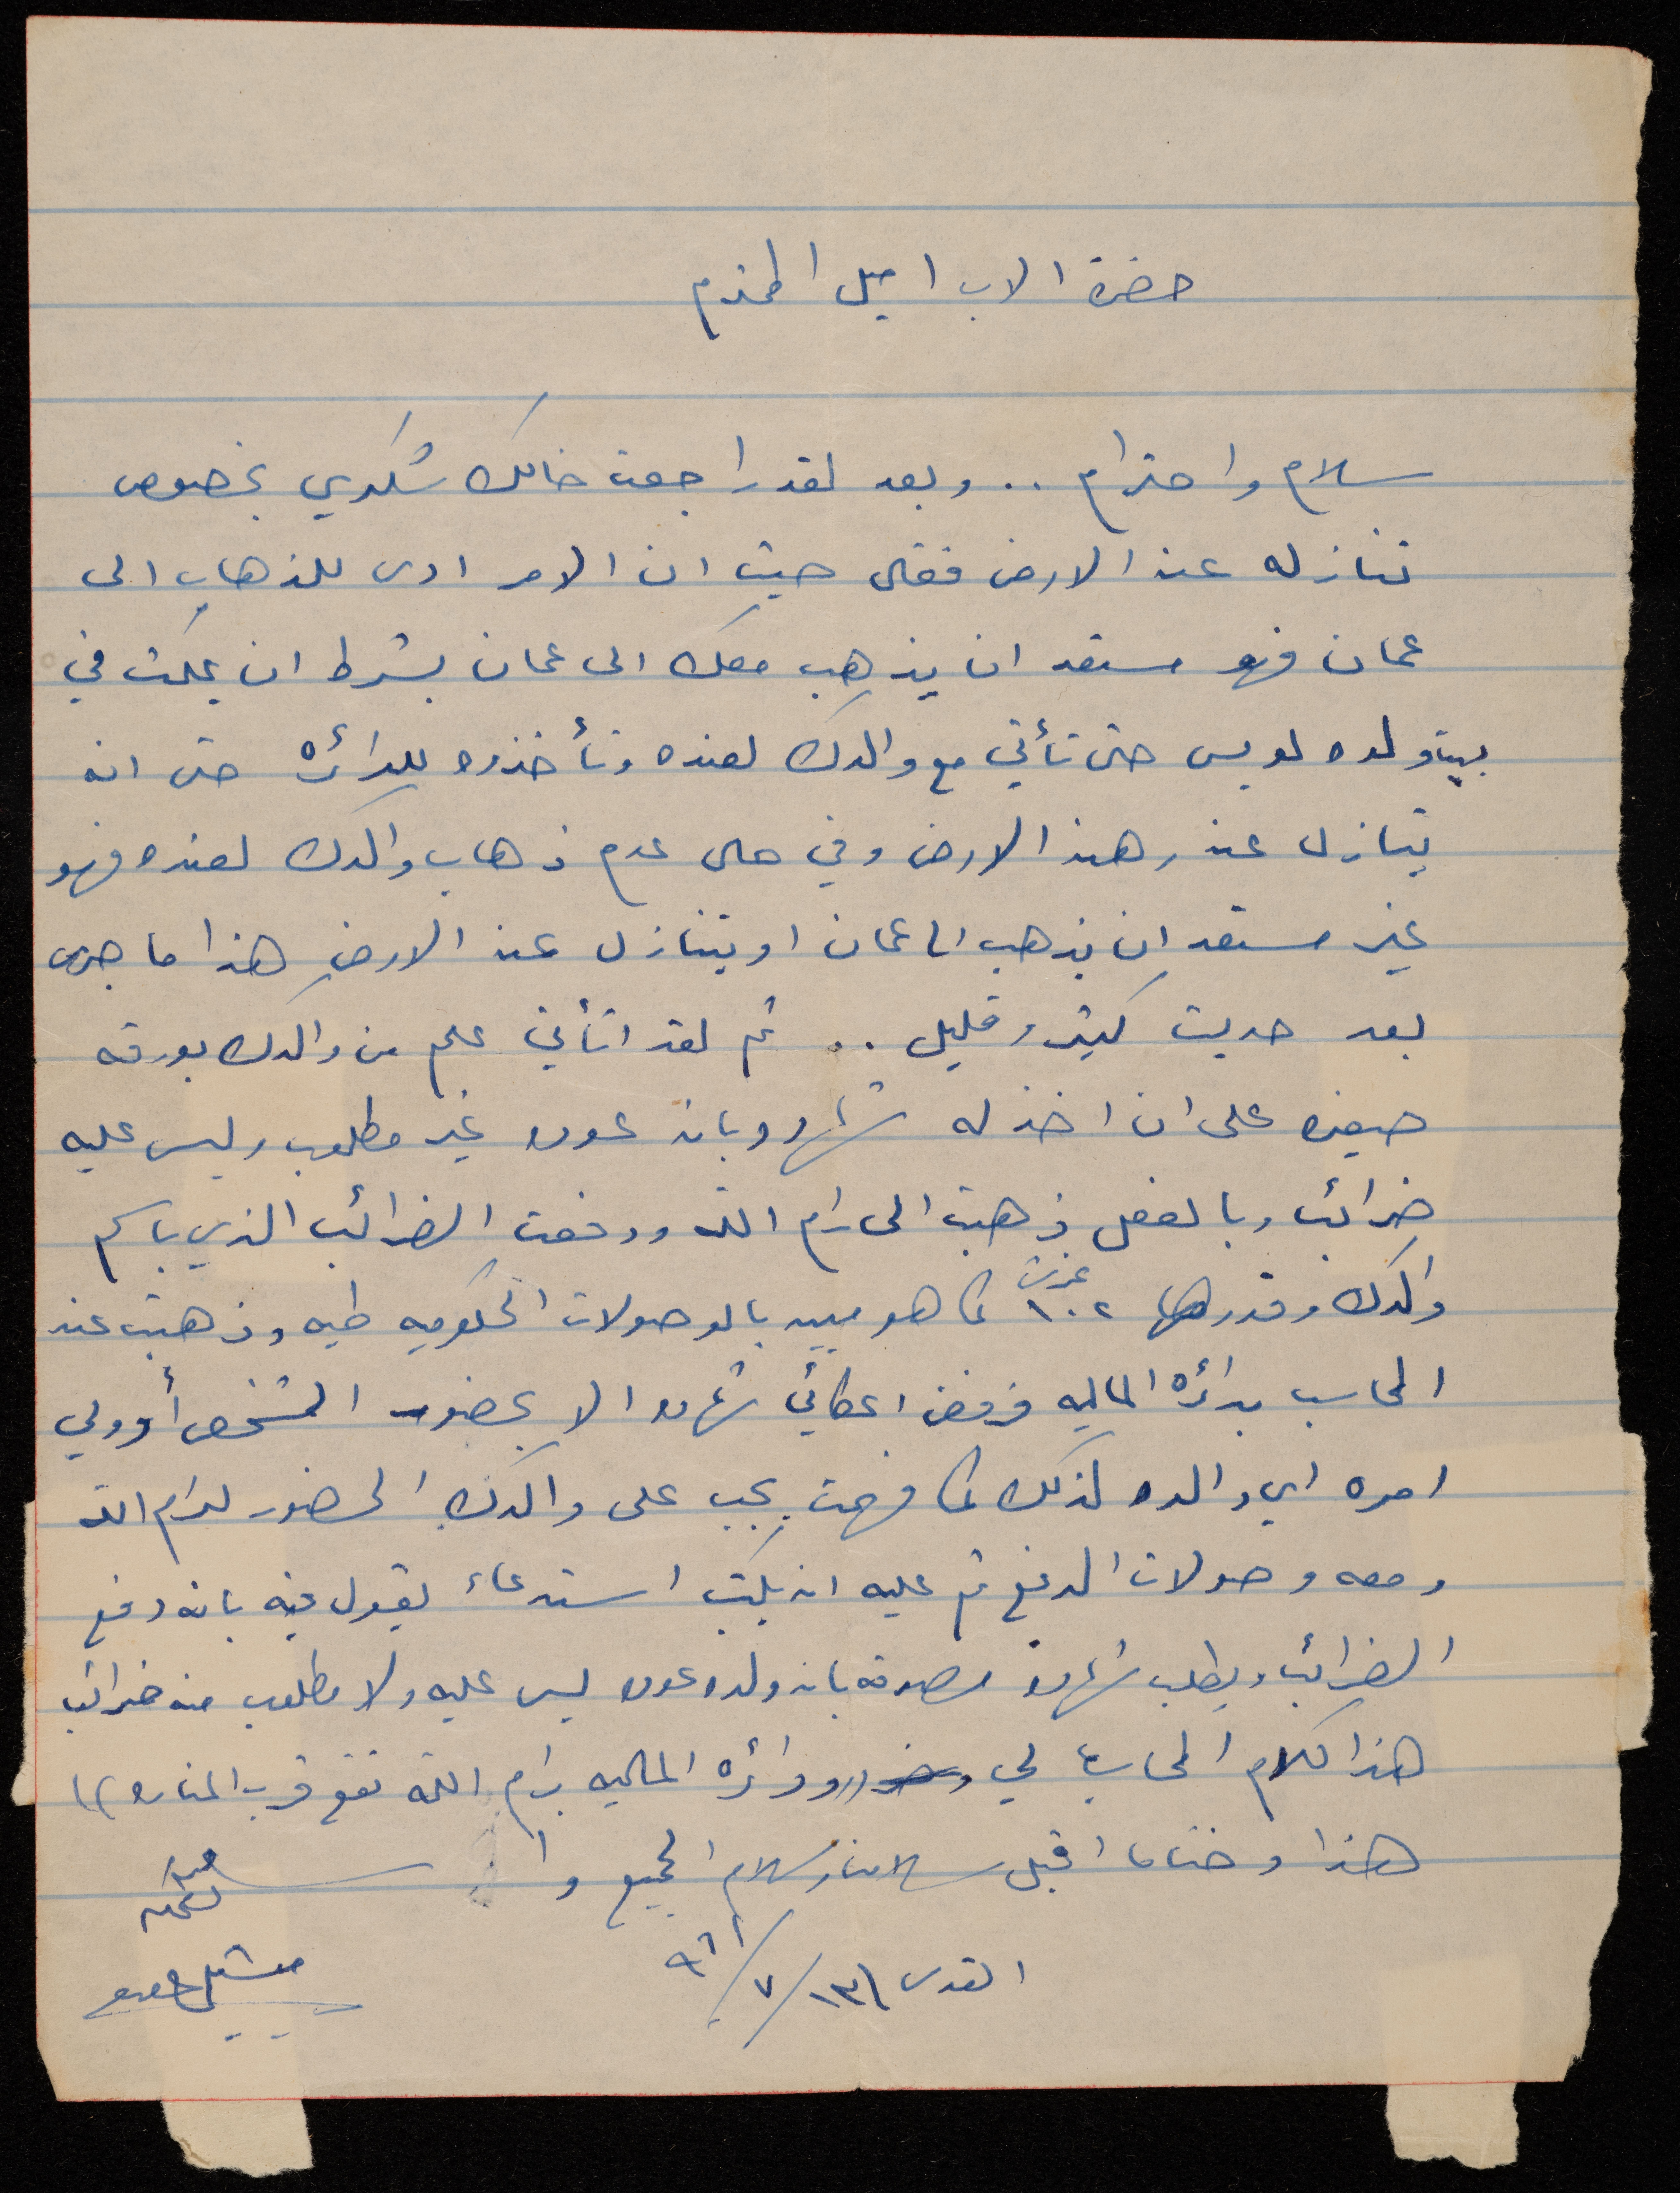 حضرة الاب اميل المحترم
سلام واحترام .. وبعد لقد راجعت خالك شكري بخصوص
تنازله عن الارض فقال حيث ان الامر ادى للذهاب الى
عمان فهو مستعد ان يذهب معك الى عمان بشرط ان يمكث في
بيت ولده لويس حتى تأتي مع والدك لعنده وتأخذوه للدائره حتى انه
يتنازل عن رهن الارض وفي حال عدم ذهاب والدك لعنده فهو
غير مستعد ان يذهب الى عمان او يتنازل عن الارض هذا ما جرى
بعد حديث كثير وقليل .. ثم لقد اتأني علم من والدك بورقه
صغيره على ان اخذ له شهاده بان عوده غير مطلوب وليس عليه
ضرائب وبالفعل ذهبت الى رام الله ودفعت الضرائب الذي باسم
والدك وقدرها ١٠٢ غرش كما هو مبين بالوصولات الحكوميه طيه وذهبت عند
المحاسب بدائرة الماليه فرفض اعطائي شهاده الا بحضور الشخص أو ولي
امره اي والده لذلك كما فهمت يجب على والدك الحضور لرام الله
ومعه وصولات الدفع ثم عليه ان يكتب استدعاء يقول فيه بانه دفع
الضرائب ويطلب شهاده مصدقه بان ولده عوده ليس عليه ولا مطلوب منه ضرائب
هذا كلام المحاسب لي ((ودائره الماليه برام الله تقع قرب المناره))
هذا وختاما اقبل سلامنا وسلام الجميع
القدس ١٣/٧/٩٦١